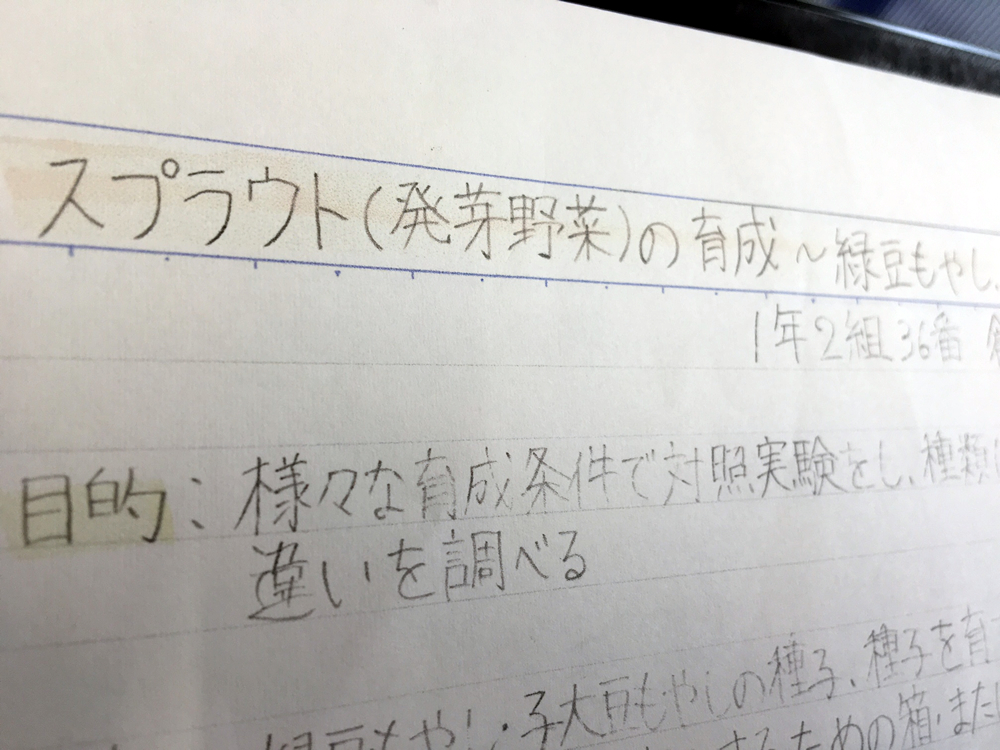 スプラウト(発芽野菜)の育成～緑豆もやし、
1年2組36番
目的：様々な育成条件で対照実験をし、種類
違いを調べる
緑豆もやし・子大豆もやしの種子、種子を育
するための箱・また